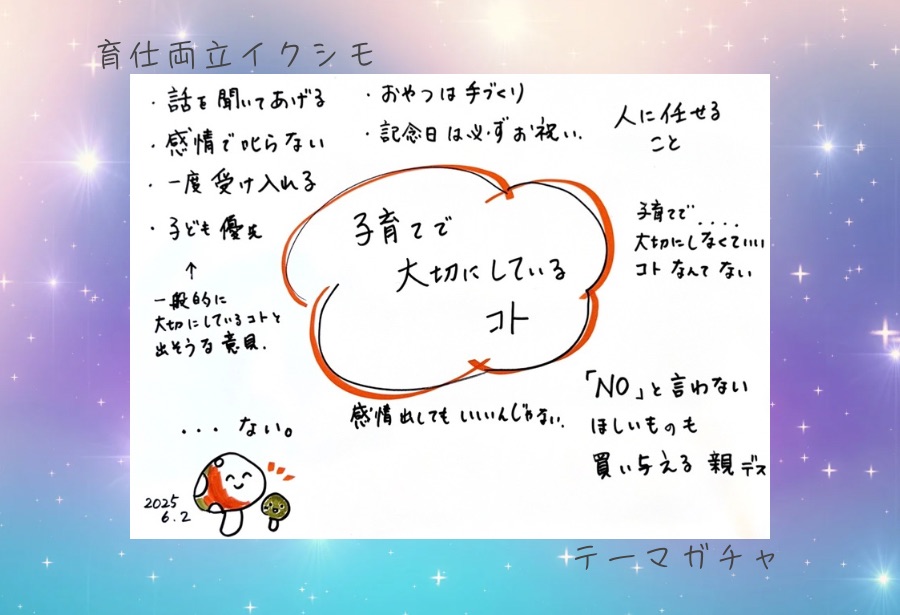 育仕両立イクシモ
・話を聞いてあげる
・感情で叱らない
・一度受け入れる
・子ども優先
↑
一般的に
大切にしているコトと
出そうな意見.
・おやつは手づくり
・記念日は必ずお祝い.
人に任せる
こと
子育てで
大切にしている
コト
子育てで....
大切にしなくていい
コトなんてない
感情出してもいいんじゃない.
「NO」と言わない
ほしいものも
買い与える親デス
・・・ない。
2025
6.2
テーマガチャ